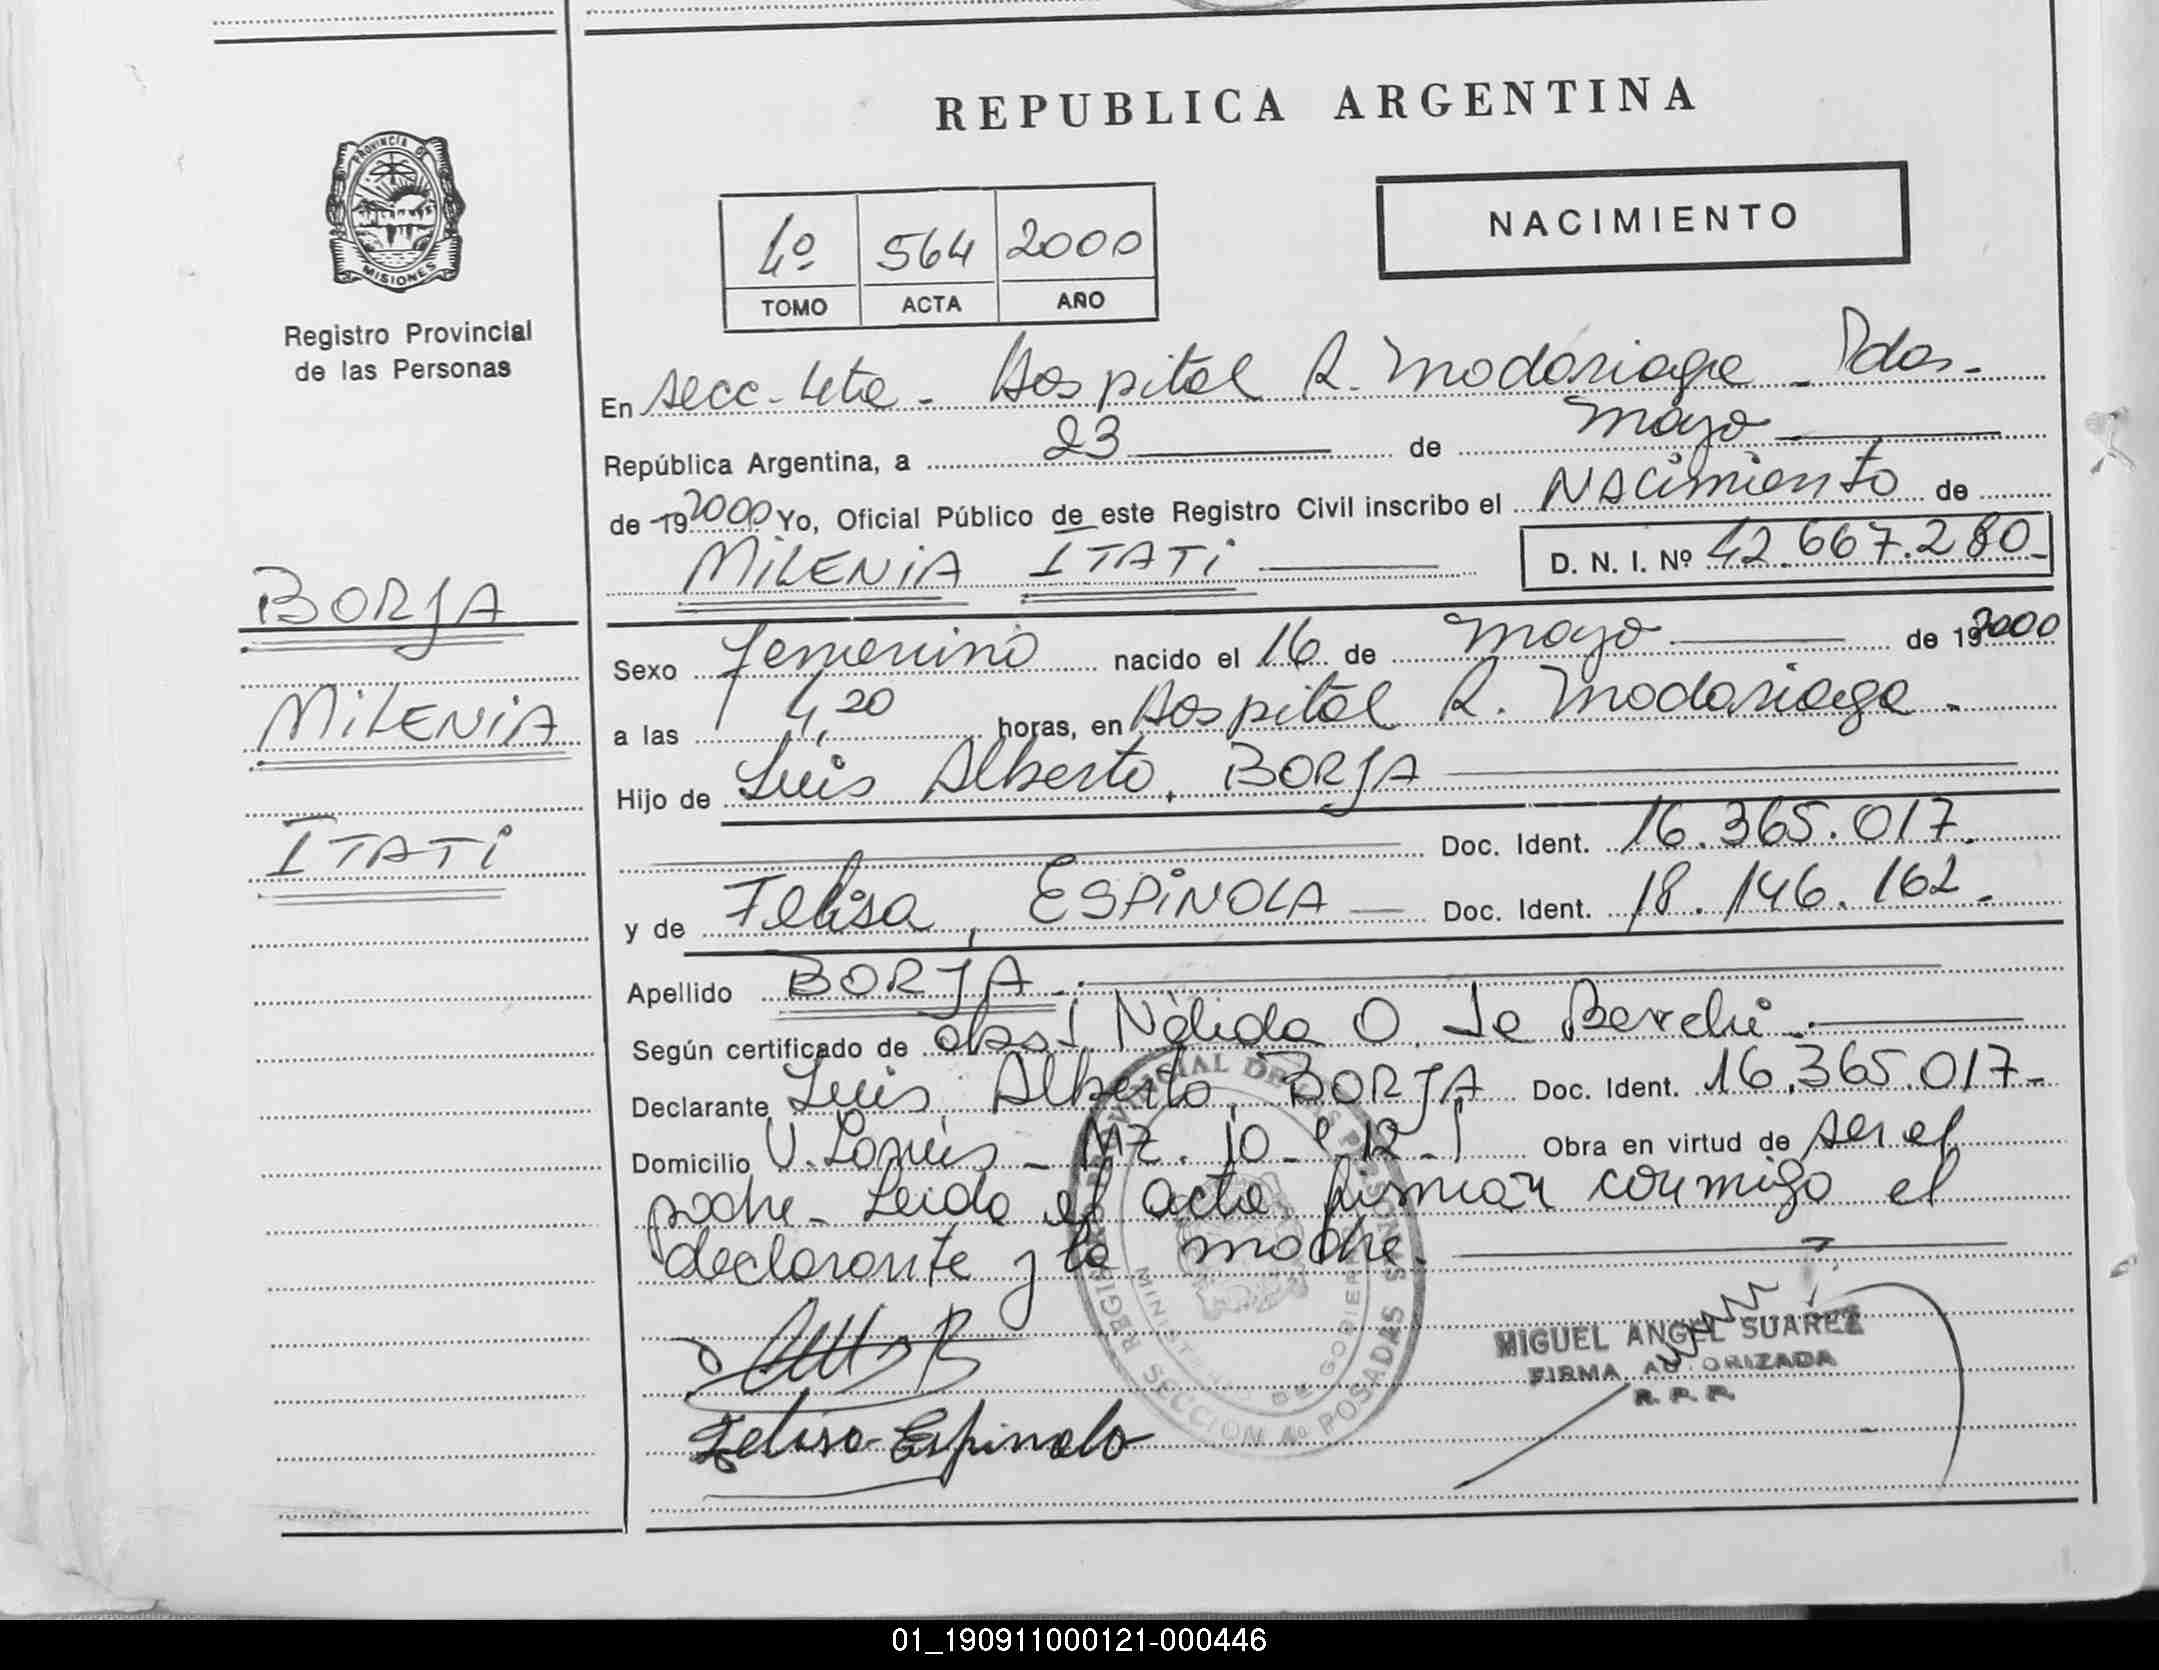 REPUBLICA ARGENTINA
PROVINCIA DE
MISIONES
Registro Provincial
de las Personas
NACIMIENTO
4º 564 2000
TOMO ACTA AÑO
En secc. 4ta - Hospital R. Madariaga - Pdas.-
República Argentina, a 23 de mayo
de 192000 Yo, Oficial Público de este Registro Civil inscribo el NACimiento de
MiLENiA ITATi D. N. I. Nº 42.667.280-
BORJA
MiLENiA
ITATi
Sexo femenino nacido el 16 de mayo de 192000
a las 4,20 horas, en Hospital R. Madariaga -
Hijo de Luis Alberto, BORJA
Doc. Ident. 16.365.017.
y de Felisa, ESPiNOLA Doc. Ident. 18.146.162.-
Apellido BORJA
Según certificado de obst. Nélida O. de
Declarante Luis Alberto, BORJA Doc. Ident. 16.365.017-
Domicilio V. Lanús - MZ. 10 - C. 12 - Obra en virtud de ser el
padre - Leida el acta firman conmigo el
declarante y la madre.
REGISTRO PROVINCIAL DE LAS PERSONAS
MINISTERIO DE GOBIERNO
SECCION 4º POSADAS
MIGUEL ANGEL SUAREZ
FIRMA AUTORIZADA
R. P. P.
Felisa Espinola
01_190911000121-000446